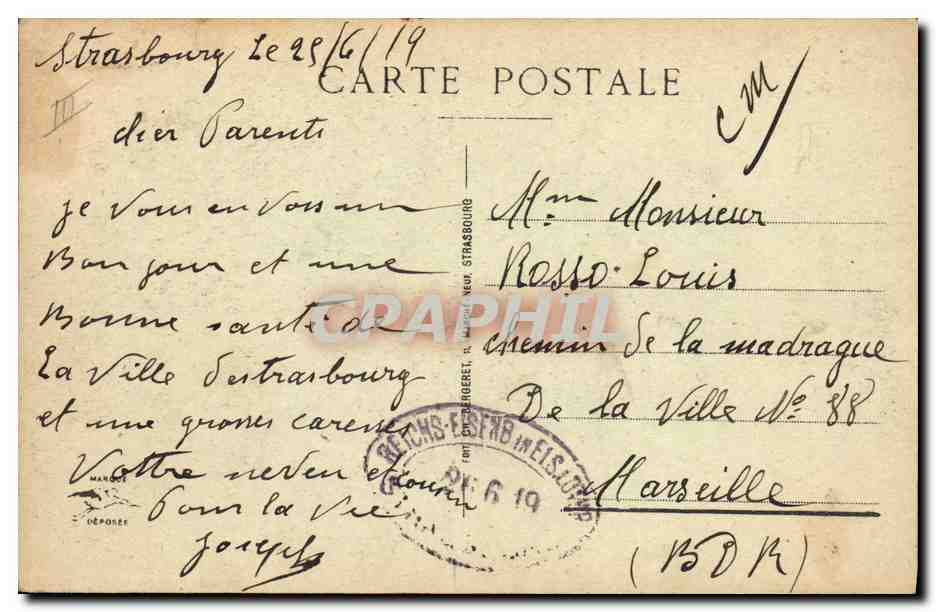 Strasbourg Le 25/6/19
CARTE POSTALE
III
CM
cher Parents
je vous envois un
Bon jour et une
Bonne santé de
La Ville destrasbourg
et une grosses caresses
Vottre neveu et cousin
Pour la Vie
Joseph
MARQUE
DÉPOSÉE
STRASBOURG
Mme Monsieur
Rosso Louis
chemin de la madrague
De la Ville No 88
Marseille
(BDR)
REICHS-EISENB IN ELS. LOTHR
6 19
CPAPHIL